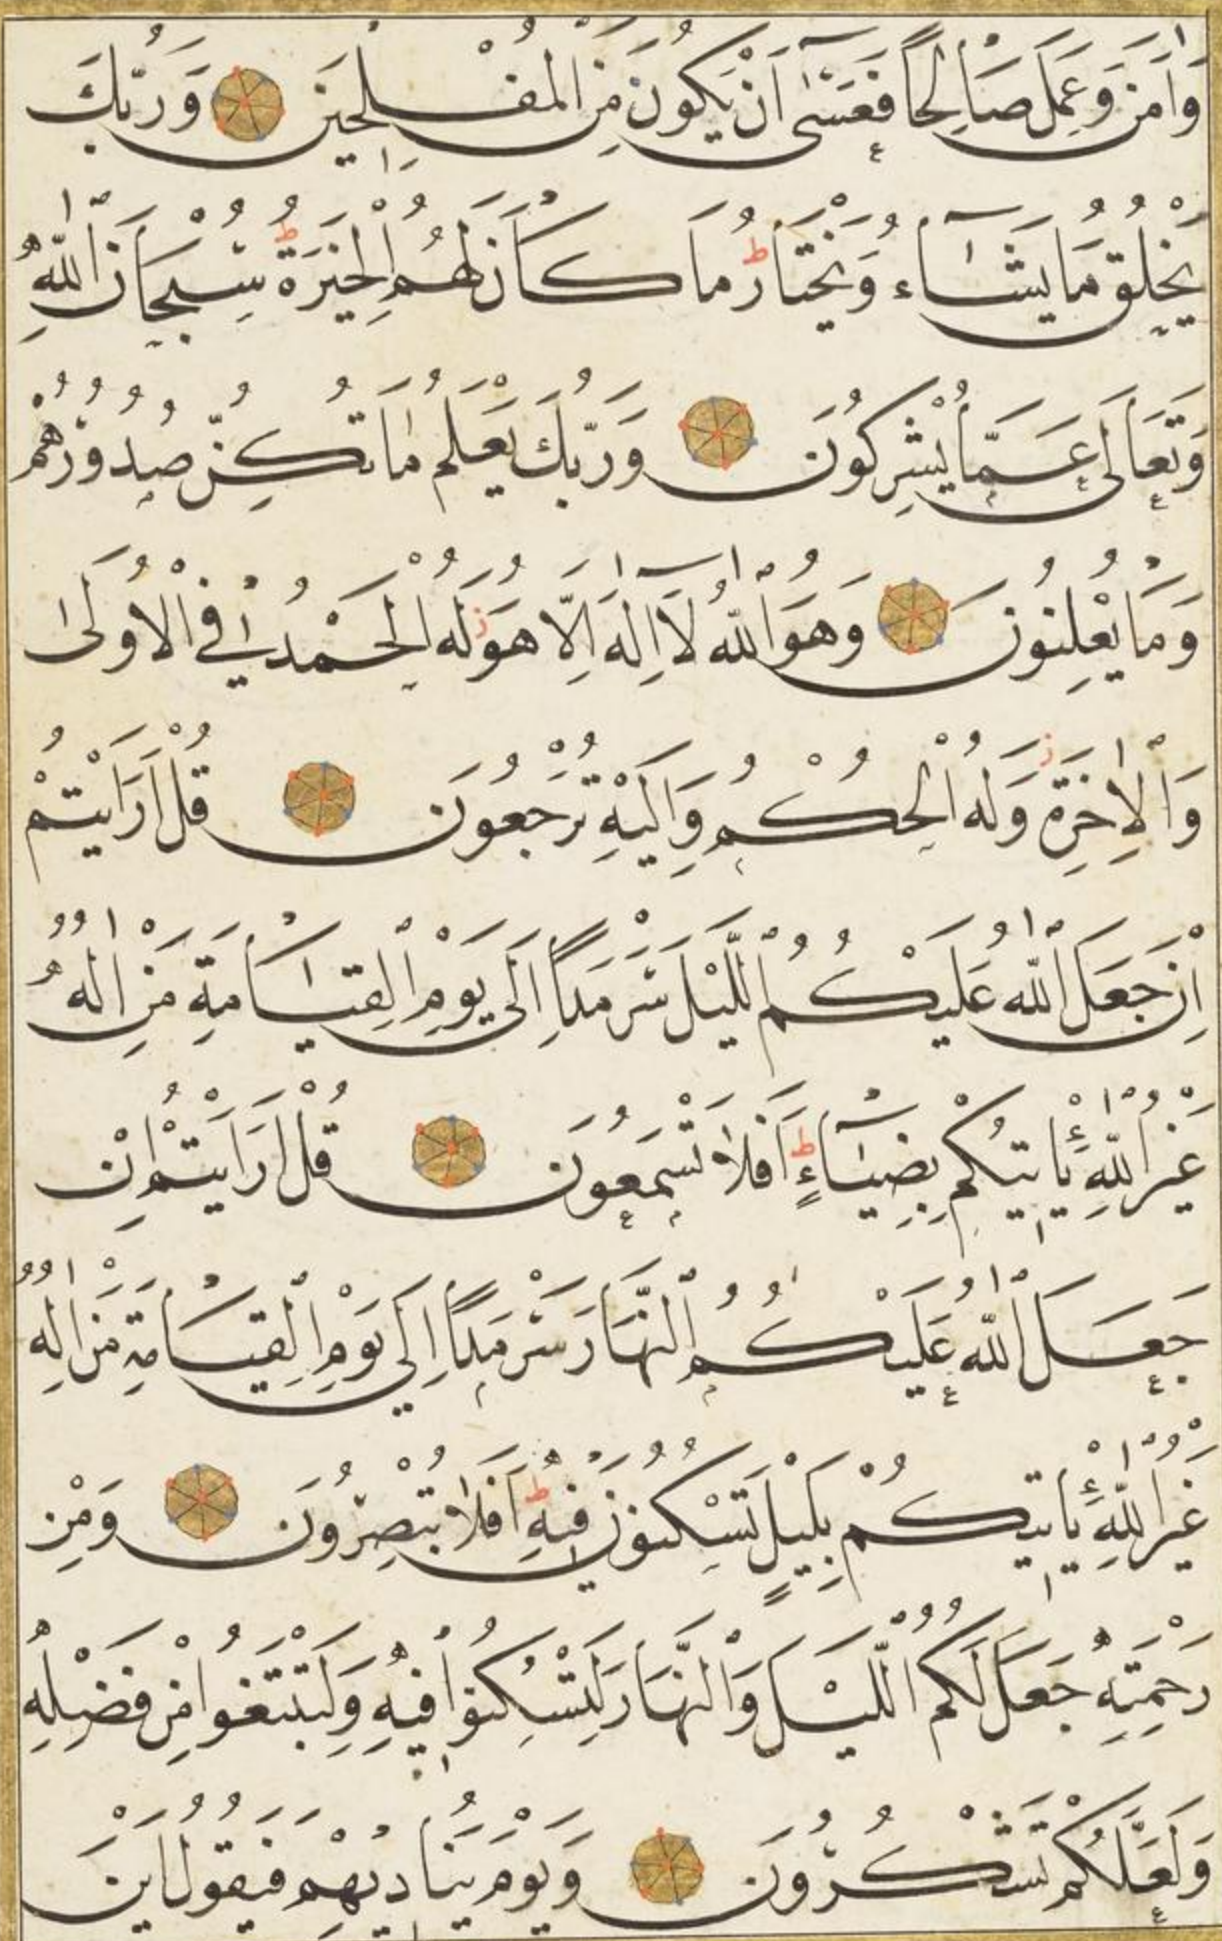 وَاٰمَنَ وَعَمِلَ صَالِحًا فَعَسٰٓى اَنْ يَكُونَ مِنَ الْمُفْلِحِينَ وَرَبُّكَ
يَخْلُقُ مَا يَشَٓاءُ وَيَخْتَارُ ط مَا كَانَ لَهُمُ الْخِيَرَةُ ط سُبْحَانَ اللّٰهِ
وَتَعَالٰى عَمَّا يُشْرِكُونَ وَرَبُّكَ يَعْلَمُ مَا تُكِنُّ صُدُورُهُمْ
وَمَا يُعْلِنُونَ وَهُوَ اللّٰهُ لَٓا اِلٰهَ اِلَّا هُوَ ز لَهُ الْحَمْدُ فِي الْاُولٰى
وَالْاٰخِرَةِ ز وَلَهُ الْحُكْمُ وَاِلَيْهِ تُرْجَعُونَ قُلْ اَرَاَيْتُمْ
اِنْ جَعَلَ اللّٰهُ عَلَيْكُمُ اللَّيْلَ سَرْمَدًا اِلٰى يَوْمِ الْقِيَامَةِ مَنْ اِلٰهٌ
غَيْرُ اللّٰهِ يَأْتِيكُمْ بِضِيَٓاءٍ ط اَفَلَا تَسْمَعُونَ قُلْ اَرَاَيْتُمْ اِنْ
جَعَلَ اللّٰهُ عَلَيْكُمُ النَّهَارَ سَرْمَدًا اِلٰى يَوْمِ الْقِيَامَةِ مَنْ اِلٰهٌ
غَيْرُ اللّٰهِ يَأْتِيكُمْ بِلَيْلٍ تَسْكُنُونَ فِيهِ ط اَفَلَا تُبْصِرُونَ وَمِنْ
رَحْمَتِهِ جَعَلَ لَكُمُ اللَّيْلَ وَالنَّهَارَ لِتَسْكُنُوا فِيهِ وَلِتَبْتَغُوا مِنْ فَضْلِهِ
وَلَعَلَّكُمْ تَشْكُرُونَ وَيَوْمَ يُنَادِيهِمْ فَيَقُولُ اَيْنَ